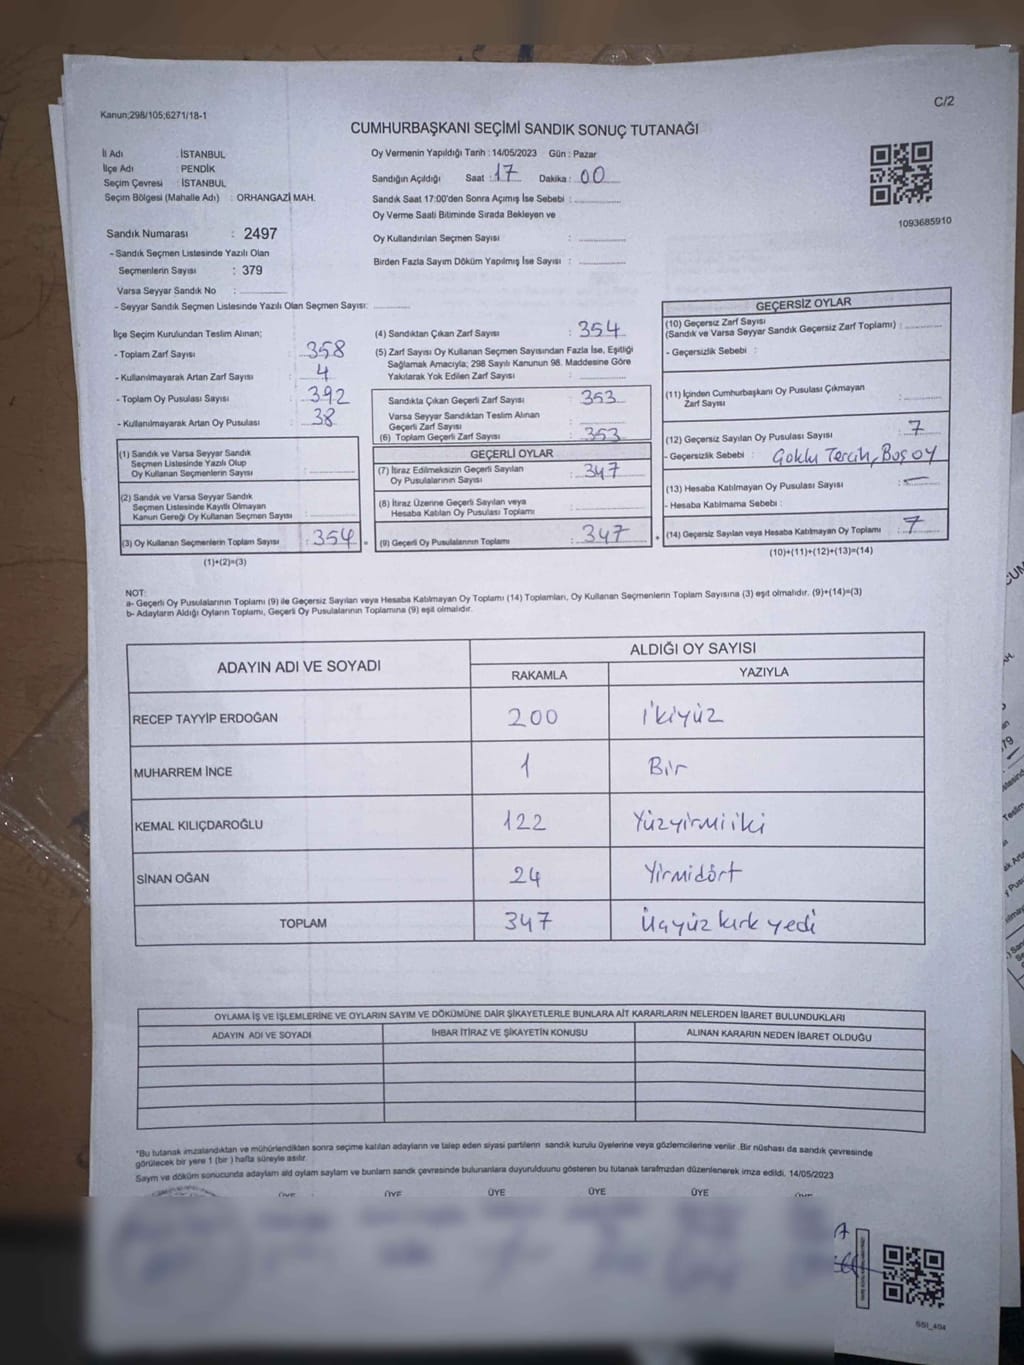 C/2
Kanun;298/105;6271/18-1
CUMHURBAŞKANI SEÇİMİ SANDIK SONUÇ TUTANAĞI
İl Adı : İSTANBUL
İlçe Adı : PENDİK
Seçim Çevresi : İSTANBUL
Seçim Bölgesi (Mahalle Adı) : ORHANGAZİ MAH.
Oy Vermenin Yapıldığı Tarih : 14/05/2023 Gün : Pazar
Sandığın Açıldığı Saat : 17 Dakika : 00
Sandık Saat 17:00'den Sonra Açımış İse Sebebi :
Oy Verme Saati Bitiminde Sırada Bekleyen ve
Oy Kullandırılan Seçmen Sayısı :
Birden Fazla Sayım Döküm Yapılmış İse Sayısı :
1093685910
Sandık Numarası : 2497
- Sandık Seçmen Listesinde Yazılı Olan
Seçmenlerin Sayısı : 379
Varsa Seyyar Sandık No :
- Seyyar Sandık Seçmen Listesinde Yazılı Olan Seçmen Sayısı:
İlçe Seçim Kurulundan Teslim Alınan;
- Toplam Zarf Sayısı : 358
- Kullanılmayarak Artan Zarf Sayısı : 4
- Toplam Oy Pusulası Sayısı : 392
- Kullanılmayarak Artan Oy Pusulası : 38
(1) Sandık ve Varsa Seyyar Sandık
Seçmen Listesinde Yazılı Olup
Oy Kullanan Seçmenlerin Sayısı :
(2) Sandık ve Varsa Seyyar Sandık
Seçmen Listesinde Kayıtlı Olmayan
Kanun Gereği Oy Kullanan Seçmen Sayısı :
(3) Oy Kullanan Seçmenlerin Toplam Sayısı : 354 =
(1)+(2)=(3)
(4) Sandıktan Çıkan Zarf Sayısı : 354
(5) Zarf Sayısı Oy Kullanan Seçmen Sayısından Fazla İse, Eşitliği
Sağlamak Amacıyla; 298 Sayılı Kanunun 98. Maddesine Göre
Yakılarak Yok Edilen Zarf Sayısı :
Sandıkta Çıkan Geçerli Zarf Sayısı : 353
Varsa Seyyar Sandıktan Teslim Alınan
Geçerli Zarf Sayısı :
(6) Toplam Geçerli Zarf Sayısı : 353
GEÇERLİ OYLAR
(7) İtiraz Edilmeksizin Geçerli Sayılan
Oy Pusulalarının Sayısı : 347
(8) İtiraz Üzerine Geçerli Sayılan veya
Hesaba Katılan Oy Pusulası Toplamı :
(9) Geçerli Oy Pusulalarının Toplamı : 347
GEÇERSİZ OYLAR
(10) Geçersiz Zarf Sayısı
(Sandık ve Varsa Seyyar Sandık Geçersiz Zarf Toplamı) :
- Geçersizlik Sebebi :
(11) İçinden Cumhurbaşkanı Oy Pusulası Çıkmayan
Zarf Sayısı :
(12) Geçersiz Sayılan Oy Pusulası Sayısı : 7
- Geçersizlik Sebebi : Çoklu Tercih, Boş oy
(13) Hesaba Katılmayan Oy Pusulası Sayısı : —
- Hesaba Katılmama Sebebi :
(14) Geçersiz Sayılan veya Hesaba Katılmayan Oy Toplamı : 7
(10)+(11)+(12)+(13)=(14)
NOT:
a- Geçerli Oy Pusulalarının Toplamı (9) ile Geçersiz Sayılan veya Hesaba Katılmayan Oy Toplamı (14) Toplamları, Oy Kullanan Seçmenlerin Toplam Sayısına (3) eşit olmalıdır. (9)+(14)=(3)
b- Adayların Aldığı Oyların Toplamı, Geçerli Oy Pusulalarının Toplamına (9) eşit olmalıdır.
ADAYIN ADI VE SOYADI ALDIĞI OY SAYISI
RAKAMLA YAZIYLA
RECEP TAYYİP ERDOĞAN 200 İkiyüz
MUHARREM İNCE 1 Bir
KEMAL KILIÇDAROĞLU 122 Yüzyirmiiki
SİNAN OĞAN 24 Yirmidört
TOPLAM 347 Üçyüz kırk yedi
OYLAMA İŞ VE İŞLEMLERİNE VE OYLARIN SAYIM VE DÖKÜMÜNE DAİR ŞİKAYETLERLE BUNLARA AİT KARARLARIN NELERDEN İBARET BULUNDUKLARI
ADAYIN ADI VE SOYADI İHBAR İTİRAZ VE ŞİKAYETİN KONUSU ALINAN KARARIN NEDEN İBARET OLDUĞU
*Bu tutanak imzalandıktan ve mühürlendikten sonra seçime katılan adayların ve talep eden siyasi partilerin sandık kurulu üyelerine veya gözlemcilerine verilir. Bir nüshası da sandık çevresinde
görülecek bir yere 1 (bir ) hafta süreyle asılır.
Saym ve döküm sonucunda adaylam ald oylam saylam ve bunlam sandk çevresinde bulunanlara duyurulduunu gösteren bu tutanak tarafmzdan düzenlenerek imza edildi, 14/05/2023
ÜYE ÜYE ÜYE ÜYE ÜYE
SSI_404